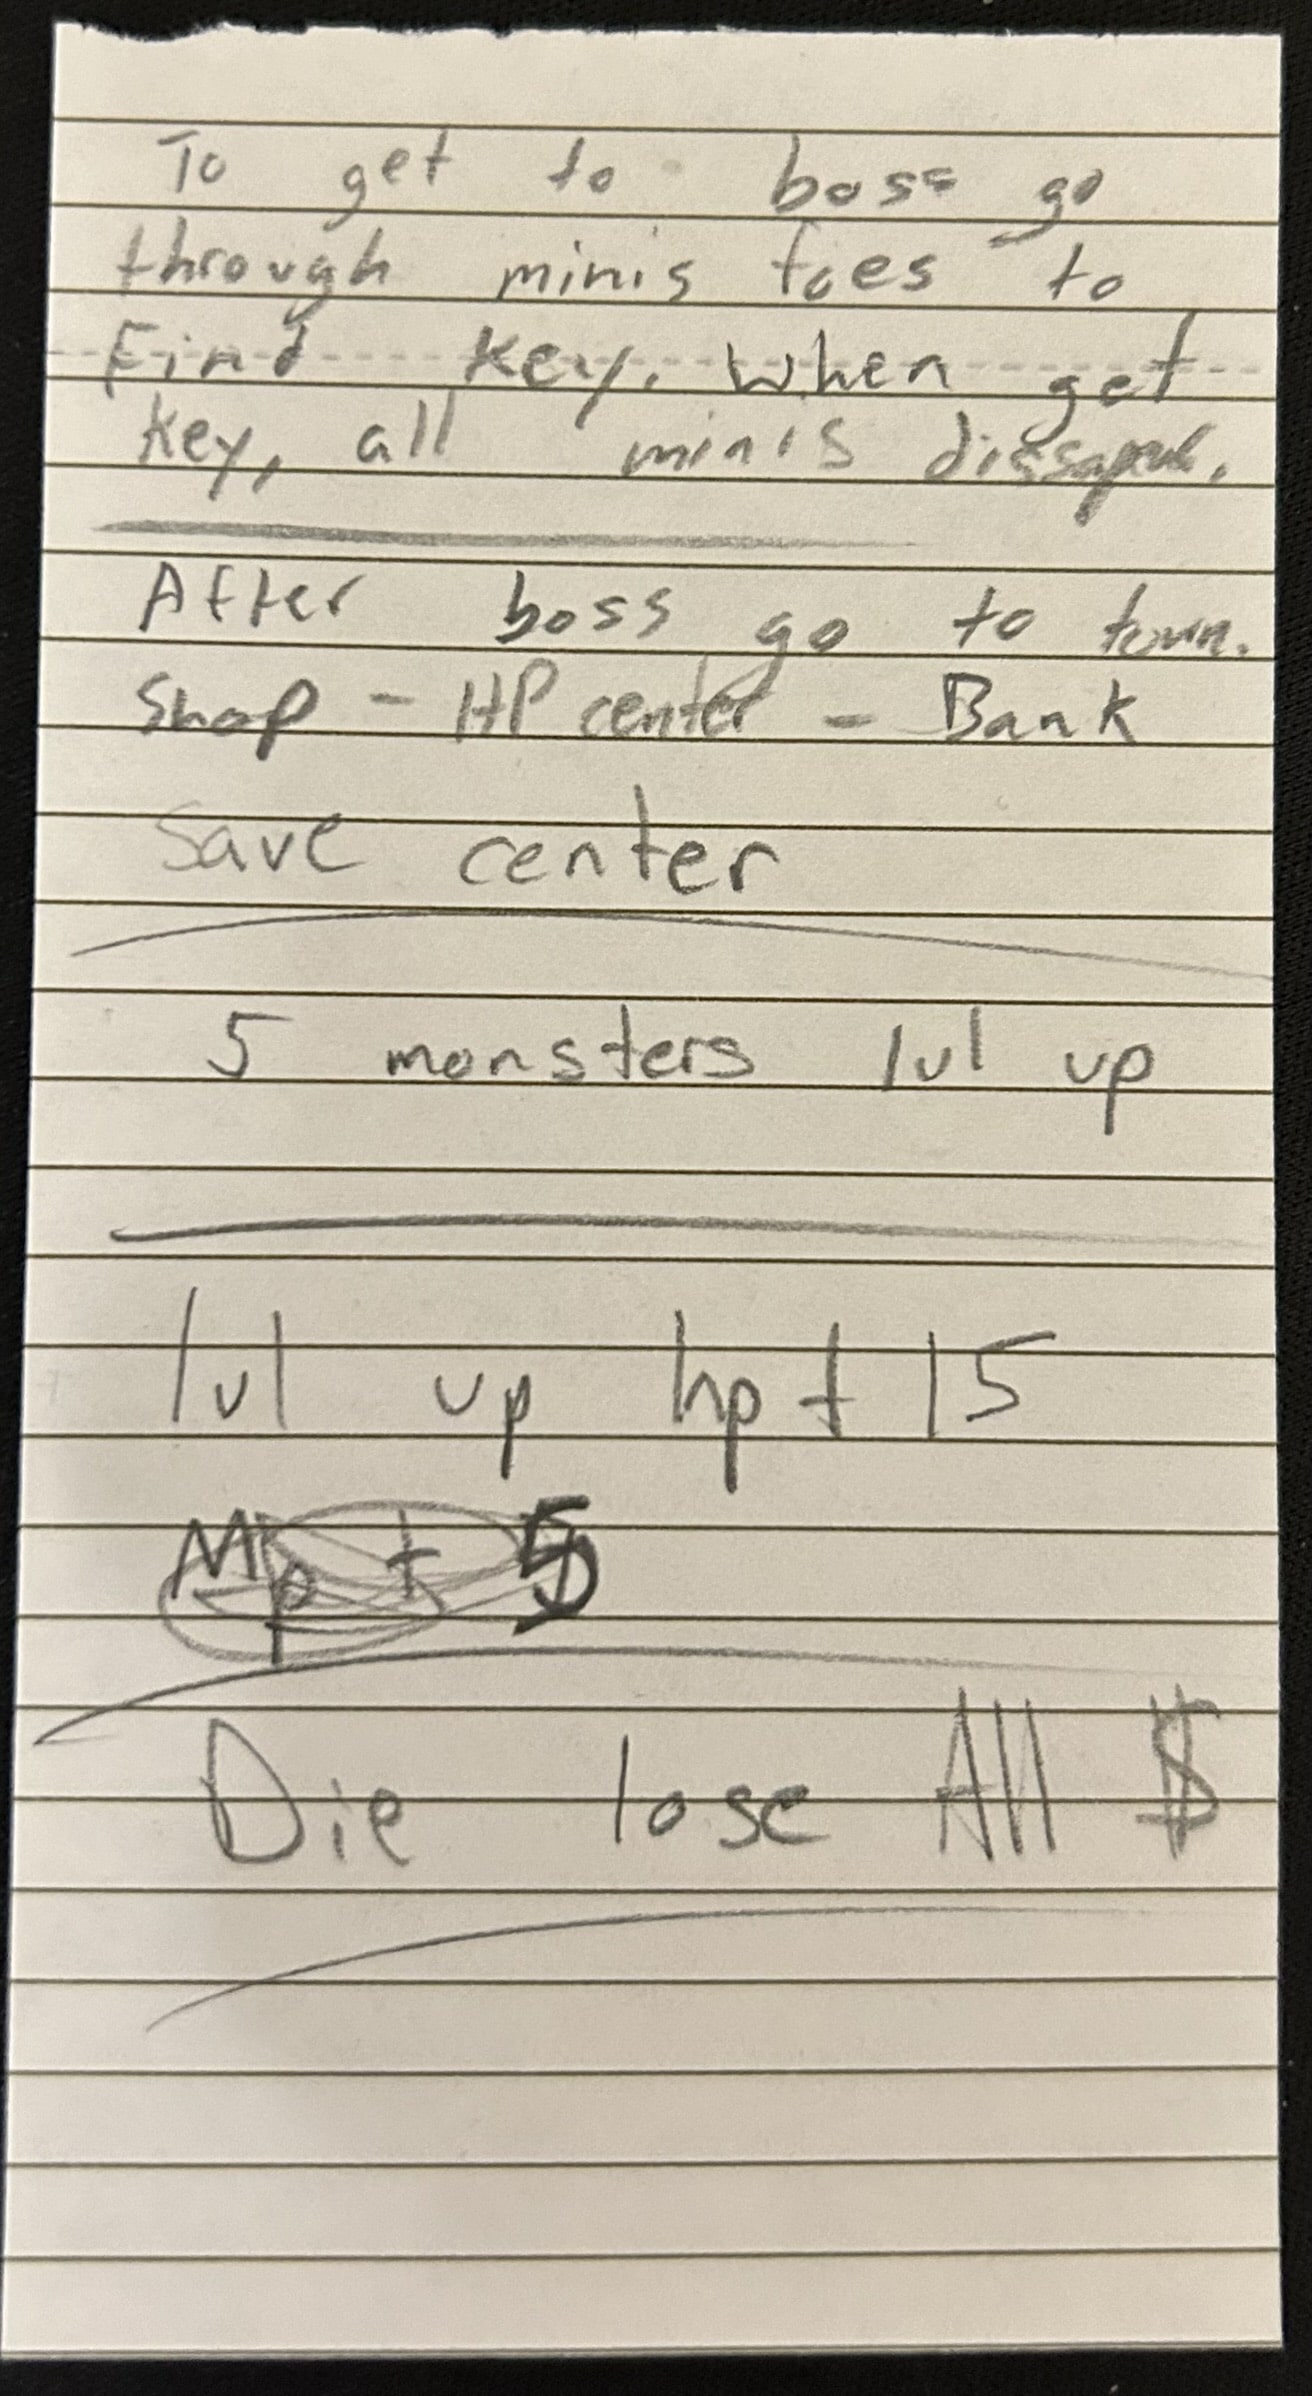 To get to boss go
through minis foes to
Find key. When get
key, all minis
After boss go to town.
Shop - HP center - Bank
Save center
5 monsters lvl up
lvl up hp + 15
Mp + 5
Die lose All $